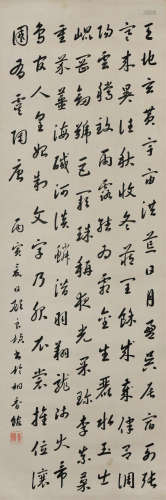 天地玄黃宇宙洪荒日月盈昃辰宿列張
寒來暑往秋收冬藏閏餘成歲律呂調
陽雲騰致雨露結為霜金生麗水玉出
崑岡劍號巨闕珠稱夜光果珍李柰菜
重芥薑海鹹河淡鱗潛羽翔龍師火帝
鳥官人皇始制文字乃服衣裳推位讓
國有虞陶唐 丙寅夏日 書於桐香館